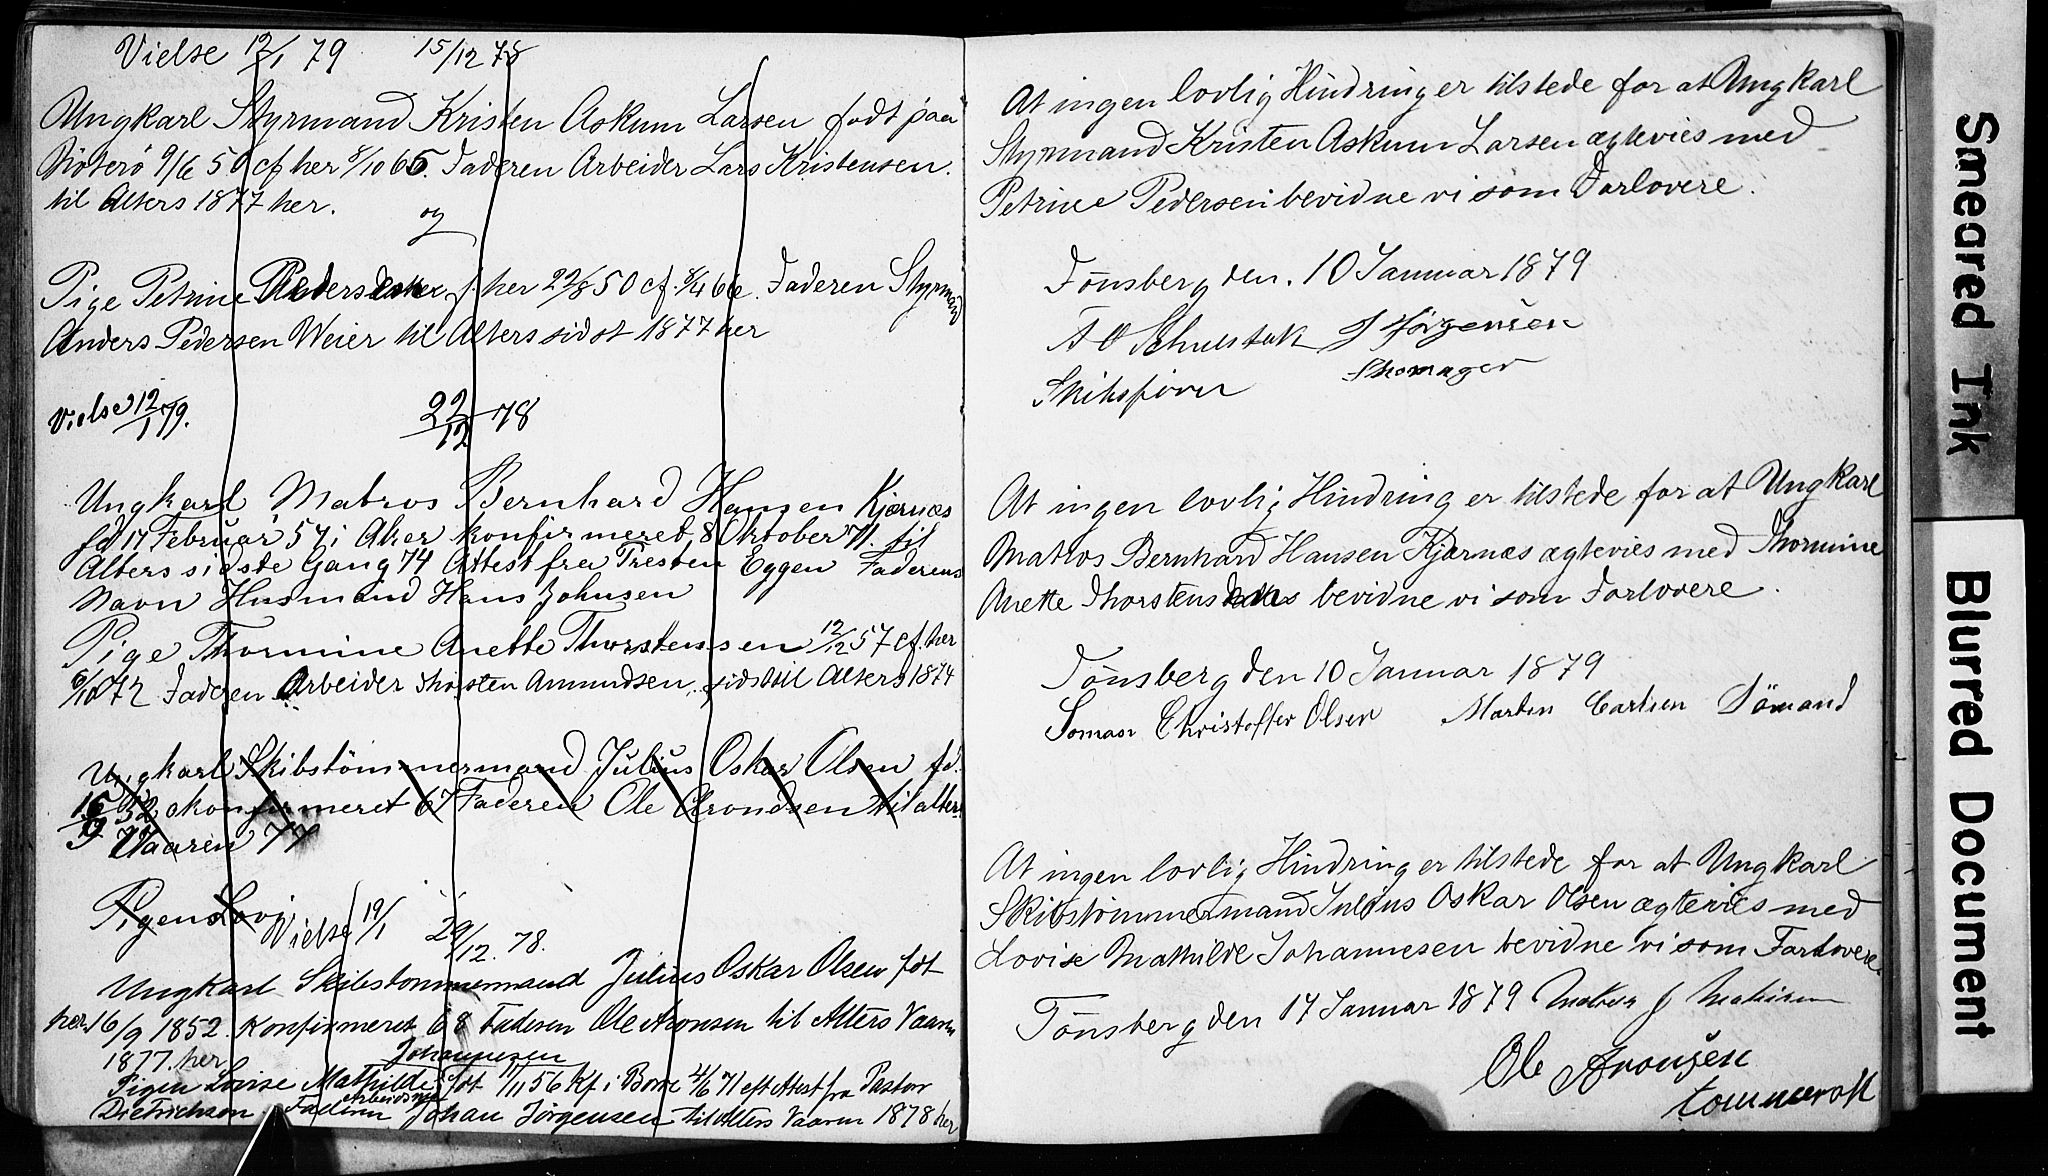 Vielse 12/1 79 15/12 78
Ungkarl Styrmand Kristen Askum Larsen født paa
Nøterø 9/6 50 cf her 8/10 65. Faderen Arbeider Lars Kristensen.
til Alters 1877 her.
og
Pige Petrine f. her 22/8 50 cf. 8/4 66. Faderen Styrmand
Anders Pedersen Weier til Alters sidst 1877 her
Vielse 12/1 79. 22/12 78
Ungkarl Matros Bernhard Hansen Kjærnæs
fd 17 Februar 57 i Aker konfirmeret 8 Oktober 71. til
Alters sidste Gang 74 Attest fra Presten Eggen Faderens
Navn Husmand Hans Johnsen
Pige Thormine Anette Thorstensen 12/12 57 cf. her
6/10 72 Faderen Arbeider Thorsten Amundsen, sidst til Alters 1874
Ungkarl Skibstømmermand Julius Oskar Olsen fd.
16/9 52 konfirmeret 67 Faderen Ole Arondsen til alters
Vaaren 77
Pigen Lovi
Vielse 19/1 29/12. 78.
Ungkarl Skibstømmermand Julius Oskar Olsen født
her 16/9 1852. Konfirmeret 68 Faderen Ole Aronsen til Alters Vaaren
1877. her
Johannesen
Pigen Lovise Mathilde født 1/11 56 Kf. i Borre 4/6 71 eft Attest fra Pastor
Arbeidsmand
Dietrichson. Faderen Johan Jørgensen til Alters Vaaren 1878 her
At ingen lovlig Hindring er tilstede for at Ungkarl
Styrmand Kristen Askum Larsen ægtevies med
Petrine Pedersen bevidne vi som Forlovere.
Tønsberg den. 10 Januar 1879
J Jørgensen
Skibsfører Skomager
At ingen lovlig Hindring er tilstede for at Ungkarl
Matros Bernhard Hansen Kjærnæs ægtevies med Thormine
Anette bevidne vi som Forlovere.
Tønsberg den 10 Januar 1879
Christoffer Olsen Martin Carlsen Sömand
At ingen lovlig Hindring er tilstede for at Ungkarl
Skibstømmermand Julius Oskar Olsen ægtevies med
Lovise Mathilde Johannesen bevidne vi som Forlovere.
Tønsberg den 17 Januar 1879
Ole Aronsen
Smeared Ink
Blurred Document